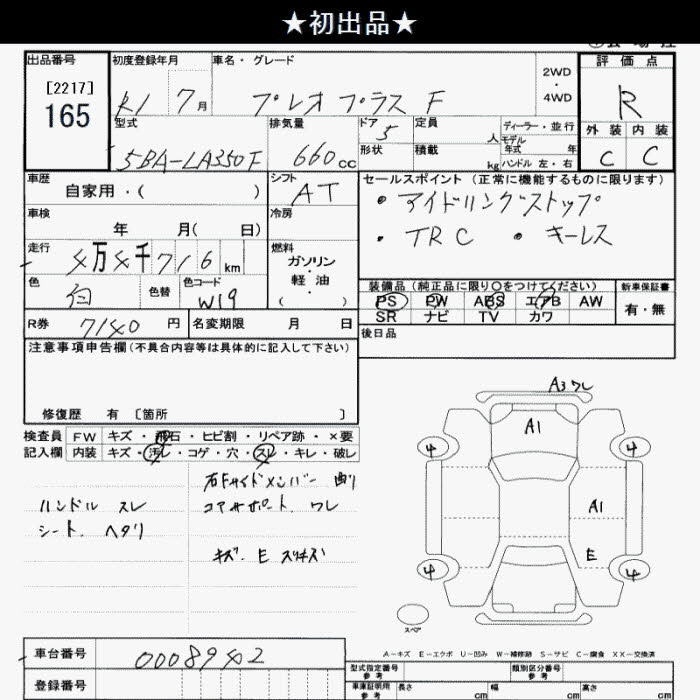 ★初出品★
出品番号
[2217]
165
初度登録年月
R1 7月
車名・グレード
プレオプラス F
2WD
・
4WD
評価点
R
外装 内装
C C
型式
5BA-LA350F
排気量
660cc
ドア
5
形状
定員
人
積載
kg
ディーラー・並行
モデル
年式 年
ハンドル 左・右
車歴
自家用・( )
シフト
AT
セールスポイント (正常に機能するものに限ります)
・アイドリングストップ
・TRC ・キーレス
車検
年 月( 日)
冷房
走行
4万4千716km
燃料
ガソリン
・
軽油
( )
色
白
色替
色コード
W19
装備品(純正品に限り○をつけてください)
PS PW ABS エアB AW
SR ナビ TV カワ
新車保証書
有・無
R券
7140円
名変期限 月 日
後日品
注意事項申告欄(不具合内容等は具体的に記入して下さい)
修復歴 有 [箇所 ]
検査員
記入欄
FW キズ・飛石・ヒビ割・リペア跡・×要
内装 キズ・汚レ・コゲ・穴・スレ・キレ・破レ
ハンドル スレ
シート ヘタリ
右Fサイドメンバー 曲リ
コアサポート ワレ
キズ E スリキズ
A3ワレ
A1
4
4
A1
E
4
4
スペア
A－キズ E－エクボ U－凹み W－補修跡 S－サビ C－腐食 XX－交換済
車台番号
0008942
登録番号
型式指定番号
参考
類別区分番号
参考
車庫証明用
参考
長さ cm
幅 cm
高さ cm